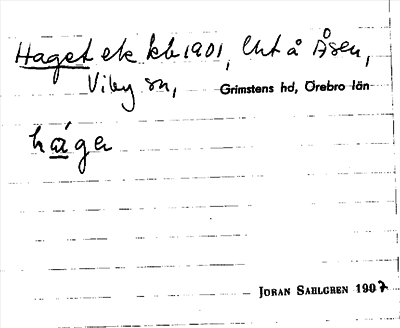 Haget ek kb 1901, lht å Åsen,
Viby sn, Grimstens hd, Örebro län
hàga
JÖRAN SAHLGREN 1907